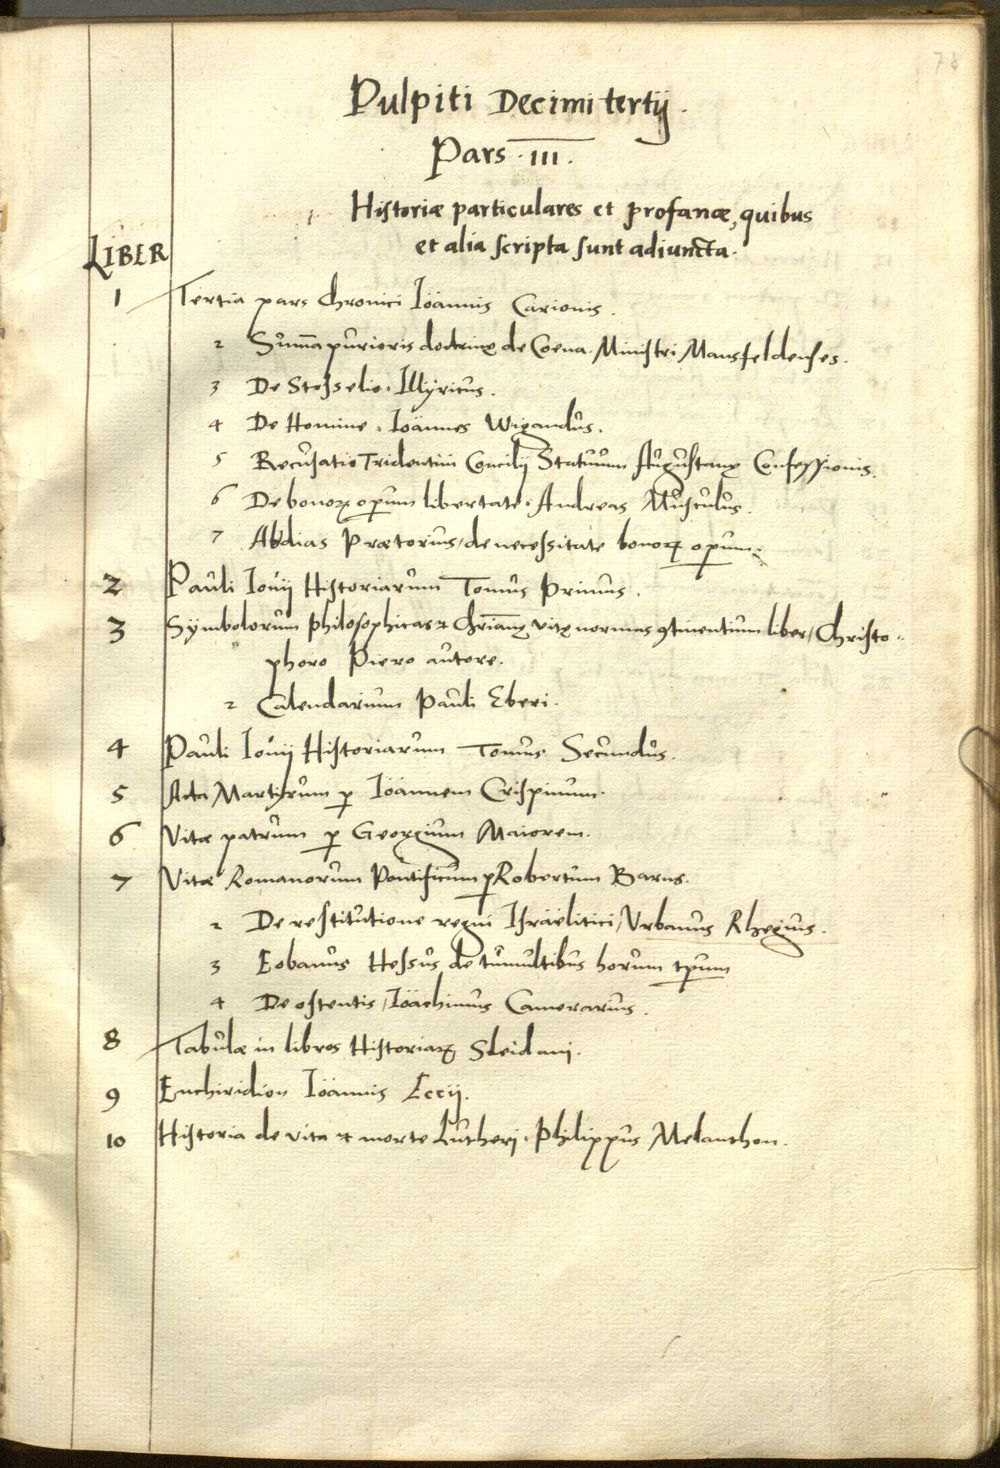 78
Pulpiti Decimi tertij.
Pars · III ·
Historiæ particulares et profanæ, quibus
et alia scripta sunt adiuncta.
LIBER
1 Tertia pars Chronici Ioannis Carionis.
2 Suma purioris doctrinę de Coena. Ministri Mansfeldenses.
3 De Stosselio. Illÿricus.
4 De Homine. Ioännes Wigandus.
5 Recusatio Tridentini Concilij Statuum Augustanę Confessionis.
6 De bonoꝝ oꝑum libertate. Andreas Musculus.
7 Abdias Prætorius / de necessitate bonoꝝ oꝑum.
2 Pauli Iouij Historiarum Tomus Primus.
3 Sÿmbolorum philosophicas & Chrianę vitę normas ꝯtinentium liber / Christo-
phoro Piero autore.
2 Calendarium Pauli Eberi.
4 Pauli Iouij Historiarum Tomus Secundus.
5 Acta Martÿrum ꝑ Ioännem Crispinum.
6 Vitæ patrum ꝑ Georgium Maiorem.
7 Vitæ Romanorum Pontificum ꝑ Robertum Barns.
2 De restitutione regni Israëlitici / Vrbanus Rhegius.
3 Eobanus Hessus de tumultibus horum tꝑum
4 De ostentis / Ioächimus Camerarius.
8 Tabulæ in libros Historiaꝝ Sleidani.
9 Enchiridion Ioännis Eccij.
10 Historia de vita & morte Lutheri. Philippus Melanthon.